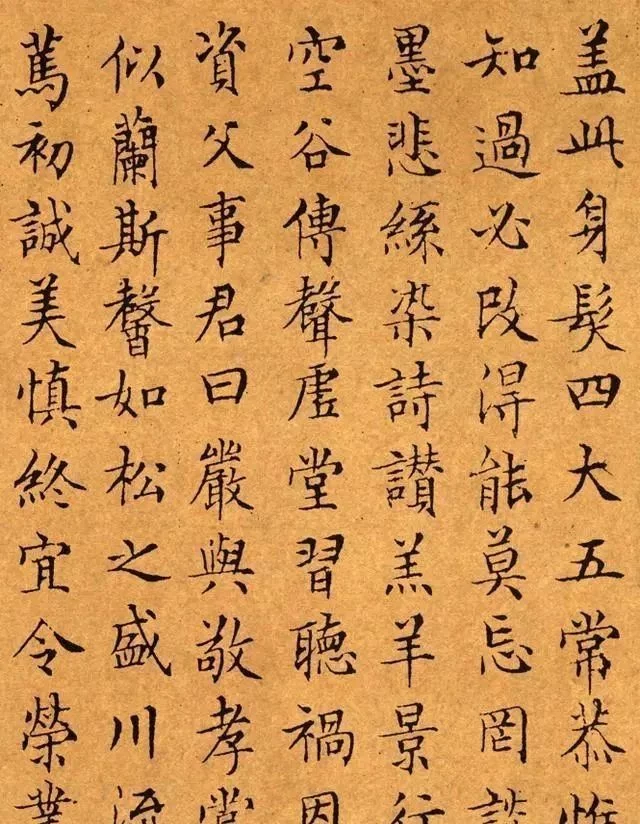 盖此身髮四大五常恭惟
知過必改得能莫忘罔談
墨悲絲染詩讃羔羊景行
空谷傳聲虚堂習聽禍因
資父事君曰嚴與敬孝當
似蘭斯馨如松之盛川流
篤初誠美慎終宜令榮業